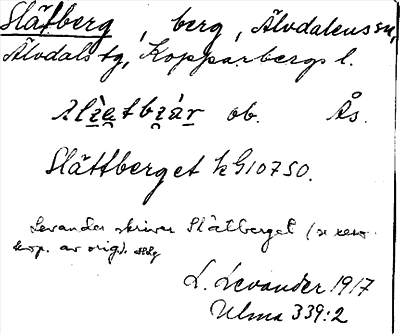 Slätberg, berg, Älvdalens sn,
Älvdals tg, Kopparbergs l.
ob. Ås.
Slättberget k G10750.
Levander skriver Slätberget (se xero-
kop. av orig).
L. Levander 1917
Ulma 339:2